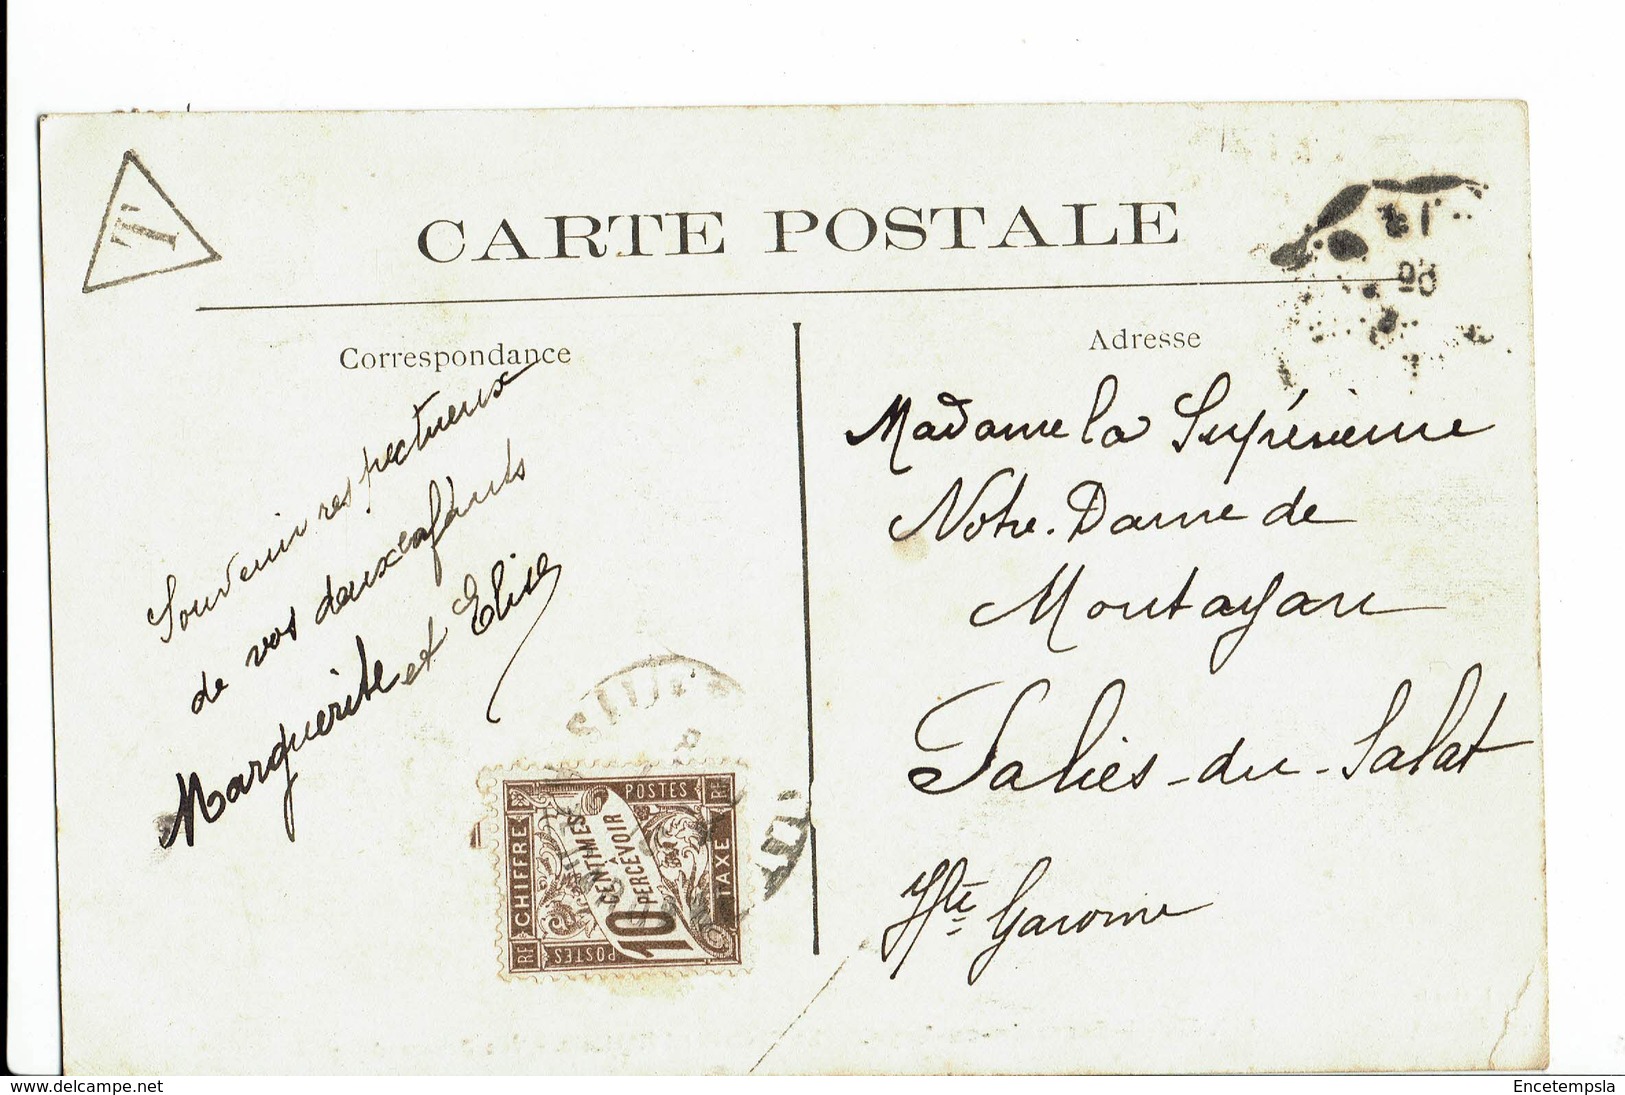 T
CARTE POSTALE
Correspondance
Souvenir respectueux
de vos deux enfants
Marguerite et Elise
Adresse
Madame la Supérieure
Notre-Dame de
Montagan
Salies-du-Salat
Hte Garonne
RF POSTES RF
CHIFFRE
10 CENTIMES
À PERCEVOIR
TAXE
RF POSTES
SALIES
www.delcampe.net
Encetempsla